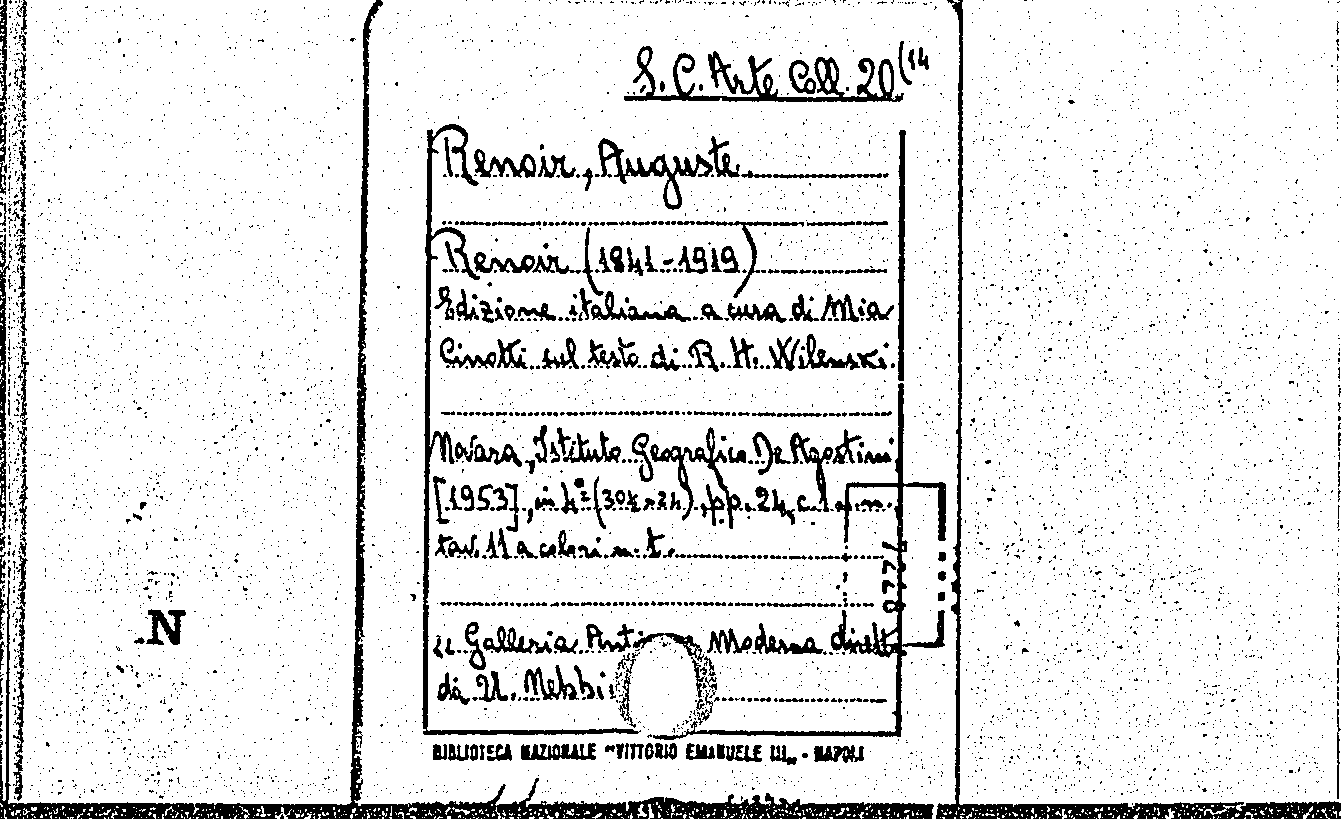 S. C. Arte Coll. 20(14
Renoir, Auguste.
Renoir (1841-1919)
Edizione italiana a cura di Mia
Cinotti sul testo di R. H. Wilenski.
Novara, Istituto Geografico De Agostini
[1953], in 4º (30½ × 24), pp. 24, c. 1 a. n.
tav. 11 a colori n. t.
Galleria Moderna dirett
da U. Nebbi
BIBLIOTECA NAZIONALE "VITTORIO EMANUELE III„ - NAPOLI
N